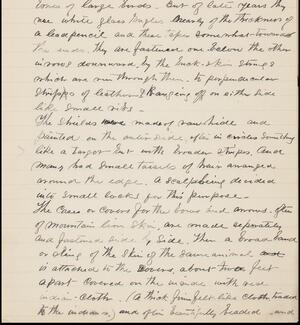 bones of large birds. But of late years they
use white glass bugles nearly of the thickness of
a lead pencil and these taper somewhat toward
the ends. They are fastened one below the other
in rows downward, by the buck-skin strings
which are run through them. to perpendicular
stripps of leather hanging off on either side
like small ribs.
The shields were made of raw hide and
painted on the outer side often in circles something
like a target but with broader stripes. And
many had small tassels of hair arranged
around the edge. A scalp being divided
into small locks for this purpose.
The cases or covers for the bows and arrows. often
of mountain lion skin, are made separately
and fastened side by side. Then a broad band
or sling of the skin of the same animal
is attached to the covers, about two feet
apart covered on the inside with red
indian-cloth. (A thick firm felt like cloth, traded
to the indians) and often beautifully beaded and